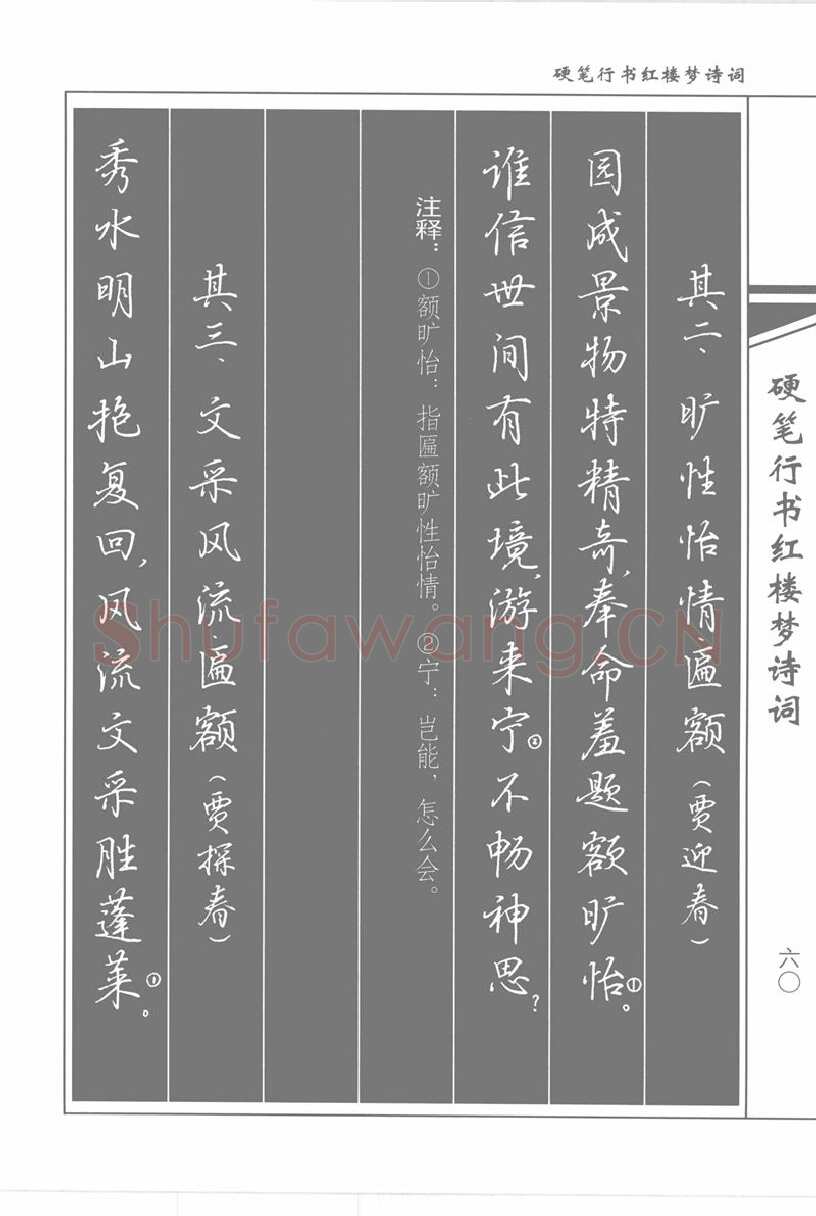 硬笔行书红楼梦诗词
其二、旷性怡情匾额（贾迎春）
园成景物特精奇，奉命羞题额旷怡①。
谁信世间有此境，游来宁②不畅神思？
注释：①额旷怡：指匾额旷性怡情。②宁：岂能，怎么会。
其三、文采风流匾额（贾探春）
秀水明山抱复回，风流文采胜蓬莱①。
硬笔行书红楼梦诗词
六〇
Shufawang.CN